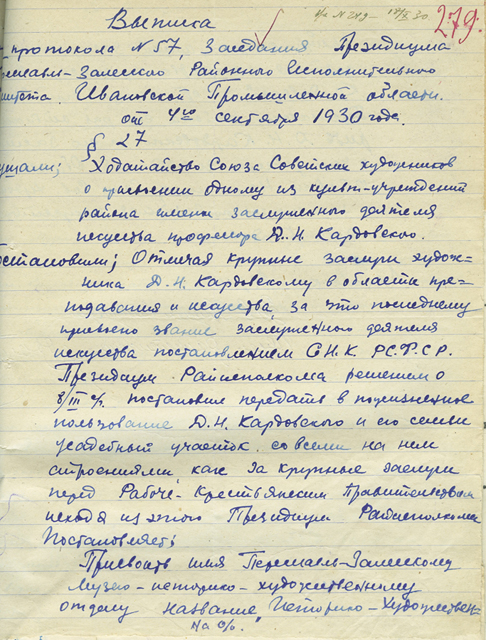 в/х № 249 - 18/X 30.
279.
Выписка
протокола № 57, Заседания Президиума
Переславль-Залесского Районного Исполнительного
Комитета, Ивановской Промышленной области.
от 4го сентября 1930 года.
§ 27
Слушали; Ходатайство Союза Советских художников
о присвоении одному из культ-учреждений
района имени заслуженного деятеля
искусства профессора Д. Н. Кардовского.
Постановили; Отмечая крупные заслуги худож-
ника Д. Н. Кардовскому в области пре-
подавания и искусства, за что последнему
присвоено звание заслуженного деятеля
искусства постановлением С.Н.К. РС.Ф.С.Р.
Президиум Райисполкома решением о
8/III с/г. постановил передать в пожизненное
пользование Д. Н. Кардовского и его семьи
усадебный участок со всеми на нем
строениями, как за крупные заслуги
перед Рабоче-Крестьянским Правительством
исходя из этого Президиум Райисполкома
Постановляет;
Присвоить имя Переславль-Залесскому
Музею-историко-художественному
отделу название „Историко-Художествен-
На об.